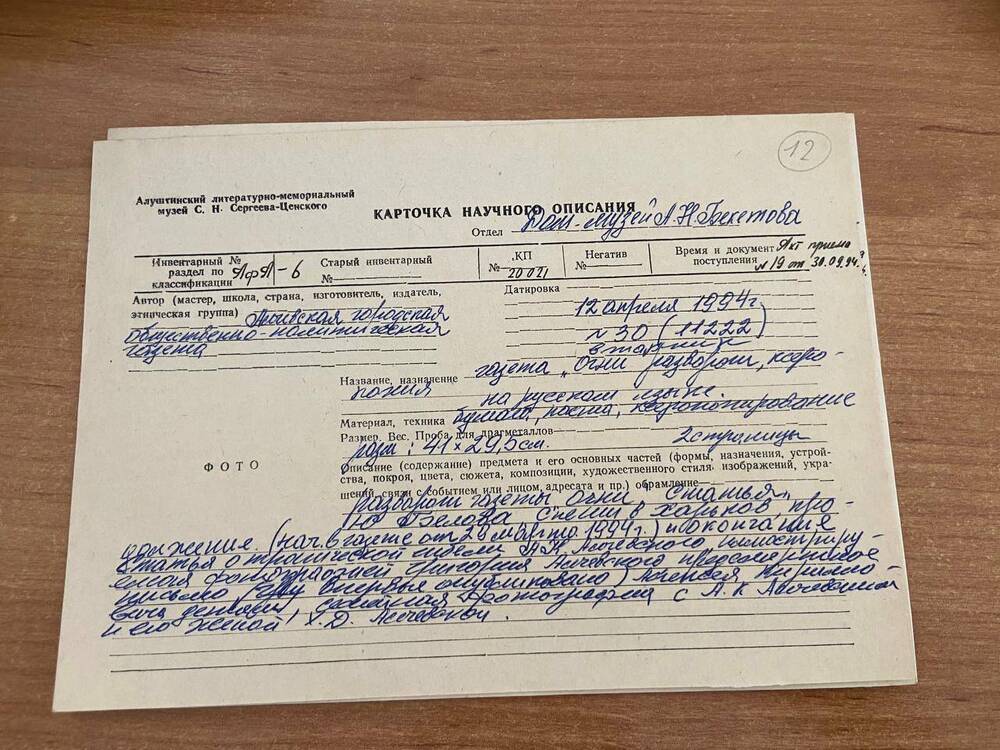 12
Алуштинский литературно-мемориальный
музей С. Н. Сергеева-Ценского
КАРТОЧКА НАУЧНОГО ОПИСАНИЯ
Отдел Дом-музей А.Н. Бекетова
Инвентарный №
раздел по
классификации АфА-6
Старый инвентарный
№
КП
№ 20021
Негатив
№
Время и документ Акт приема
поступления №19 от 30.09.94г.
Автор (мастер, школа, страна, изготовитель, издатель,
этническая группа) Алчевская городская
общественно-политическая
газета
Датировка
12 апреля 1994г.
№30 (11222)
вторник
Название, назначение газета „Огни" разворот, ксеро-
копия на русском языке.
Материал, техника бумага, ксерокопирование
Размер. Вес. Проба для драгметаллов
разм: 41×29,5см. 2 страницы
ФОТО
Описание (содержание) предмета и его основных частей (формы, назначения, устрой-
ства, покроя, цвета, сюжета, композиции, художественного стиля изображений, укра-
шений, связи с событием или лицом, адресата и пр.) обрамление
разворот газеты „Огни", статья
Ю. Белова в Харьков про-
должение (нач. в газете от 29 марта 1994г.) и окончание
статьи о трагической А.К. Алчевского иллюстриру-
емая фотографией Григория Алчевского предсмертное
письмо (впервые опубликовано) Алексея Кирилло-
вича фотография с А.К. Алчевским
и его женой Х.Д. Алчевской.